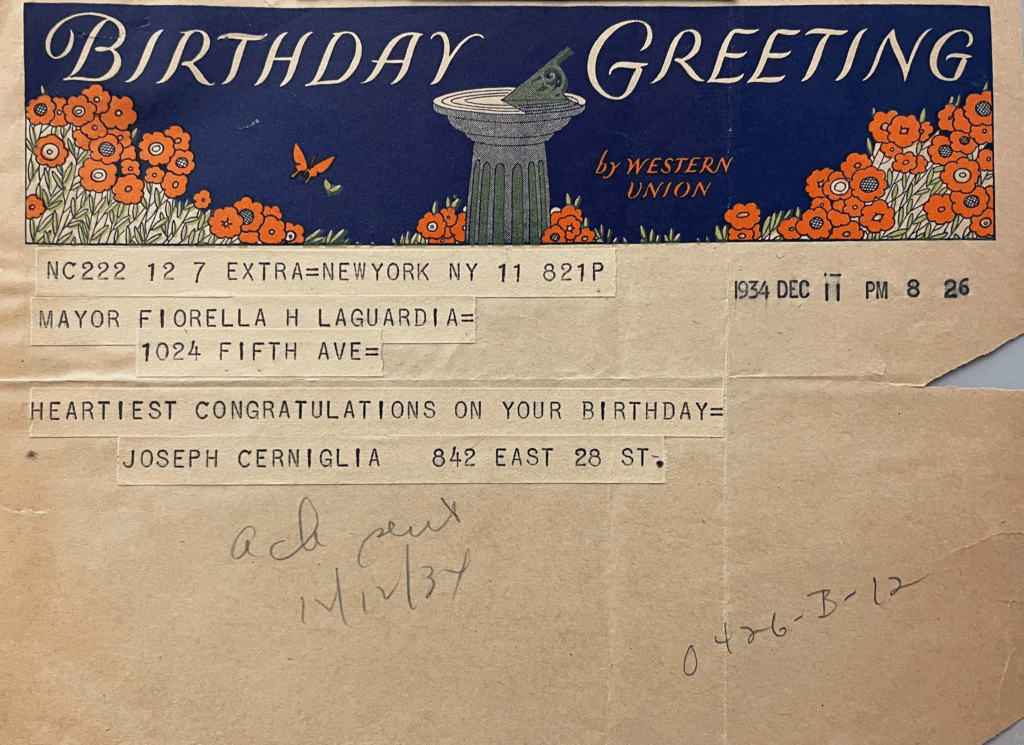 BIRTHDAY GREETING
by WESTERN
UNION
NC222 12 7 EXTRA=NEWYORK NY 11 821P
1934 DEC 11 PM 8 26
MAYOR FIORELLA H LAGUARDIA=
1024 FIFTH AVE=
HEARTIEST CONGRATULATIONS ON YOUR BIRTHDAY=
JOSEPH CERNIGLIA 842 EAST 28 ST.
ack sent
12/12/34
0426-B-12